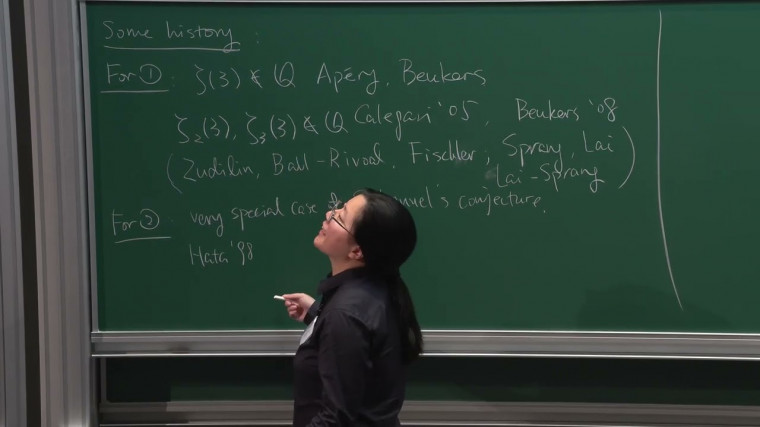 Some history :
For ① : ζ(3) ∉ ℚ Apéry, Beukers
ζ₂(3), ζ₃(3) ∉ ℚ Calegari '05, Beukers '08
(Zudilin, Ball-Rivoal, Fischler, Sprang, Lai
Lai-Sprang)
For ② : very special case conjecture.
Hata '98